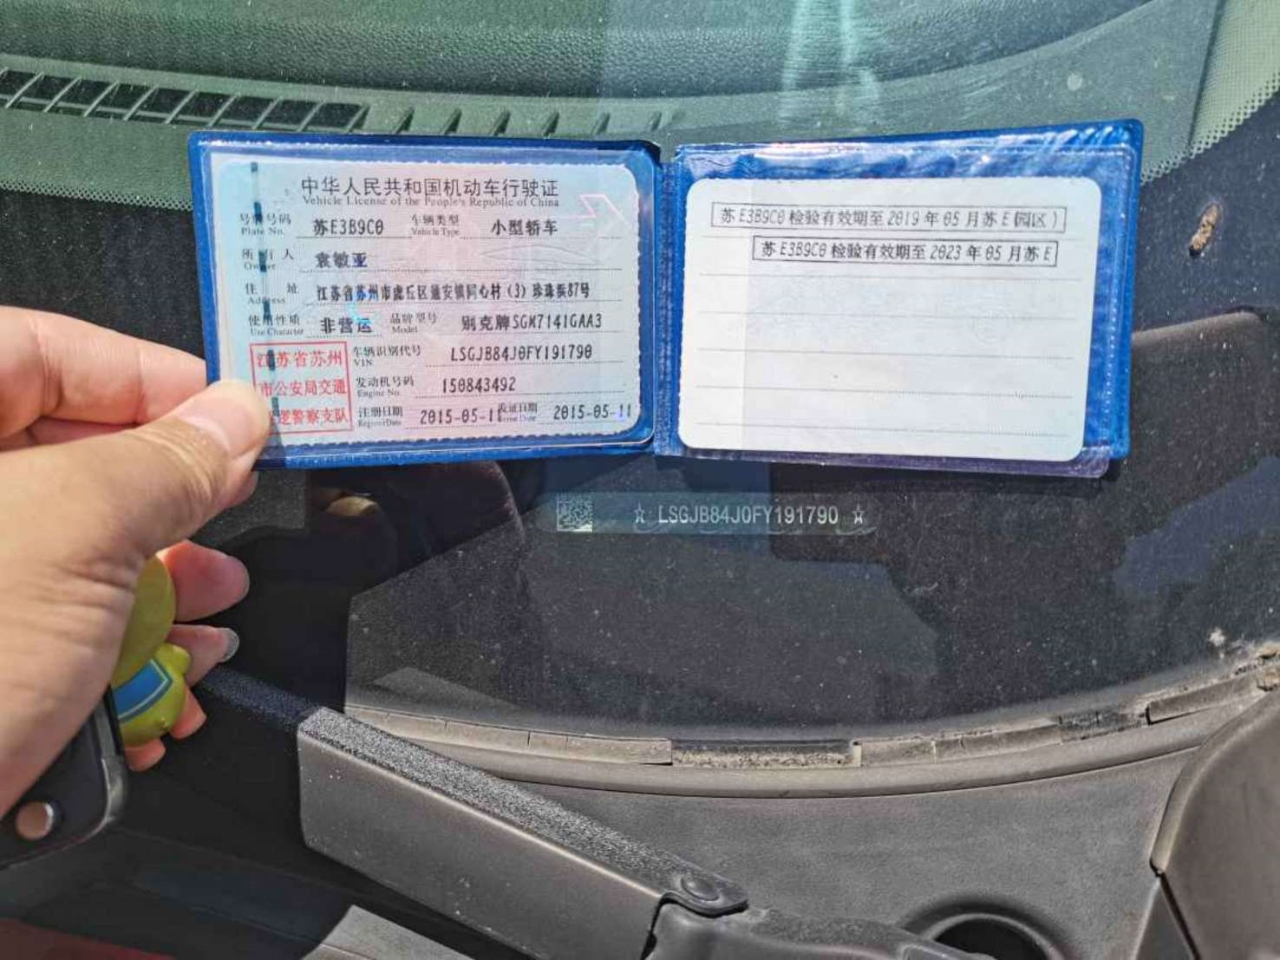 中华人民共和国机动车行驶证
Vehicle License of the People's Republic of China
号牌号码 苏E3B9C0 车辆类型 小型轿车
Plate No. Vehicle Type
所有人 袁敏亚
Owner
住址 江苏省苏州市虎丘区通安镇同心村(3)珍珠浜87号
Address
使用性质 非营运 品牌型号 别克牌SGM7141GAA3
Use Character Model
江苏省苏州
市公安局交通
巡逻警察支队
车辆识别代号 LSGJB84J0FY191790
VIN
发动机号码 150843492
Engine No.
注册日期 2015-05-11 发证日期 2015-05-11
Register Date Issue Date
苏E3B9C0检验有效期至2019年05月苏E(园区)
苏E3B9C0检验有效期至2023年05月苏E
☆ LSGJB84J0FY191790 ☆